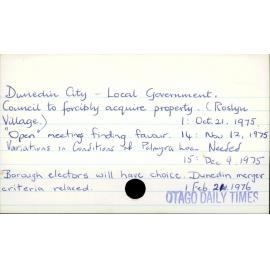 Dunedin City - Local Government.
Council to forcibly acquire property. (Roslyn
Village.) 1: Oct. 21. 1975.
"Open" meeting finding favour. 14: Nov 12, 1975
Variations in Conditions of Palmyra Loan Needed
15: Dec 9. 1975
Borough electors will have choice. Dunedin merger
criteria relaxed. 1 Feb 21. 1976
OTAGO DAILY TIMES